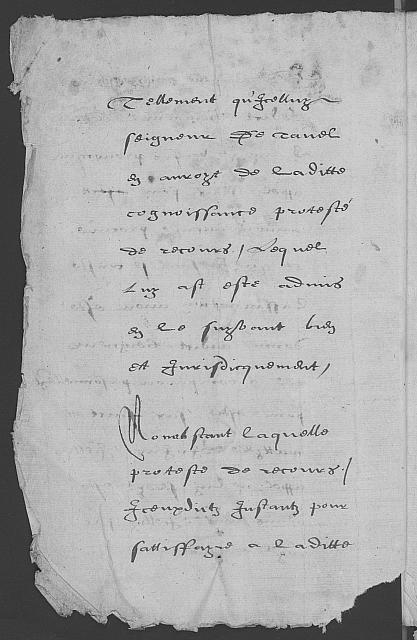 Tellement qu'Jcelluy
seigneur De tavel
en auroyt de Laditte
cognoissance protesté
de recours / Lequel
Luy ast esté admis
en le suyvant bien
et Jurisdicquement /
Nonobstant Laquelle
proteste de recours /
Jceuxditz Jnstantz pour
sattisfayre a Laditte